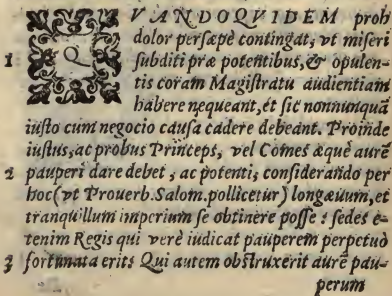 QVANDOQVIDEM proh
dolor persæpè contingat, vt miseri
1 subditi præ potentibus, & opulen-
tis coram Magistratu audientiam
habere nequeant, et sic nonnunquã
iusto cum negocio causa cadere debeant. Proinde
iustus, ac probus Princeps, vel Comes æquè aurẽ
2 pauperi dare debet, ac potenti, considerando per
hoc (vt Prouerb. Salom. pollicetur) longæuum, et
tranquillum imperium se obtinere posse : sedes e-
tenim Regis qui verè iudicat pauperem perpetuò
3 fortunata erit: Qui autem obstruxerit aurẽ pau-
perum